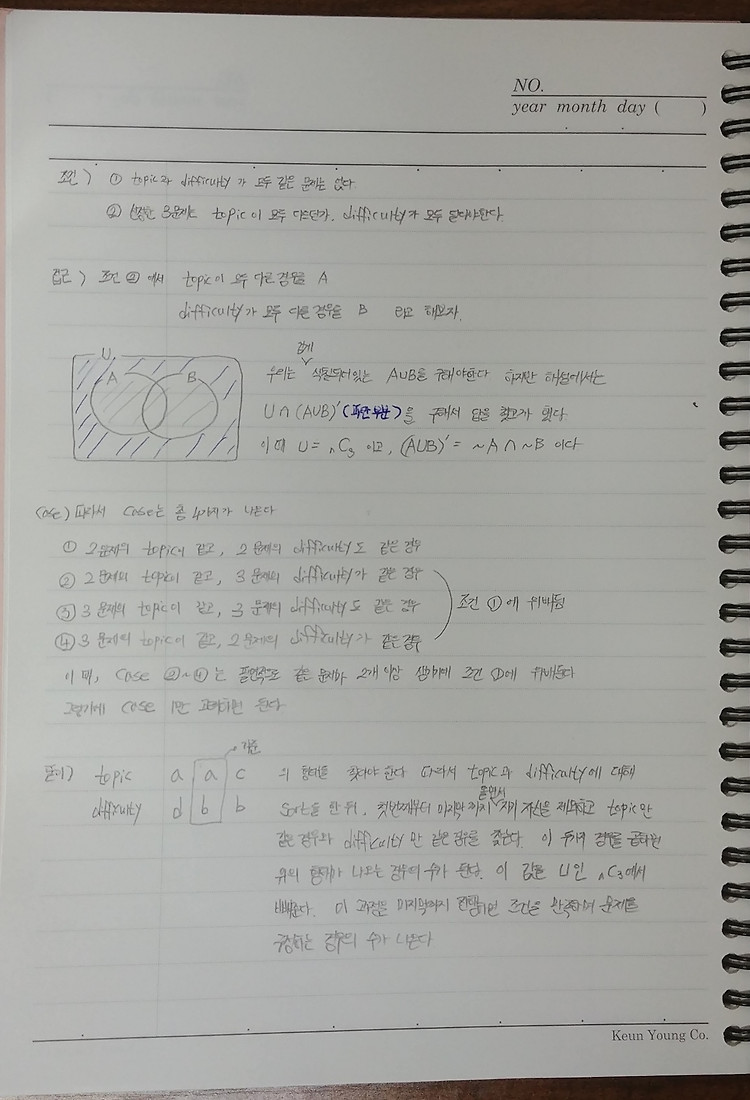 NO.
year month day ( )
조건) ① topic과 difficulty가 모두 같은 문제는 없다
② 선정한 3문제는 topic이 모두 다르던가, difficulty가 모두 달라야한다.
접근) 조건 ②에서 topic이 모두 다른 경우를 A
difficulty가 모두 다른 경우를 B 라고 해보자.
U
A B
우리는 검게 색칠되어있는 A∪B를 구해야한다 하지만 해설에서는
U∩(A∪B)'(파란부분)을 구해서 답을 찾고자 했다
이때 U = nC3 이고, (A∪B)' = ~A ∩ ~B 이다
Case) 따라서 Case는 총 4가지가 나온다
① 2문제의 topic이 같고, 2문제의 difficulty도 같은 경우
② 2문제의 topic이 같고, 3문제의 difficulty가 같은 경우
③ 3문제의 topic이 같고, 3문제의 difficulty도 같은 경우
④ 3문제의 topic이 같고, 2문제의 difficulty가 같은 경우
조건 ①에 위배됨
이때, Case ②~④는 필연적으로 같은 문제가 2개 이상 생기기에 조건 ①에 위배된다
그렇기에 case 1만 고려하면 된다
기준
풀이) topic a a c 의 형태를 찾아야 한다 따라서 topic과 difficulty에 대해
difficulty d b b sort를 한 뒤, 첫번째부터 마지막까지 돌면서 자기 자신을 제외하고 topic만
같은 경우와 difficulty만 같은 경우를 찾는다. 이 두가지 경우를 곱하면
위의 형태가 나오는 경우의 수가 된다. 이 값을 U인 nC3에서
빼준다. 이 과정을 마지막까지 진행하면 조건을 만족하며 문제를
구성하는 경우의 수가 나온다
Keun Young Co.